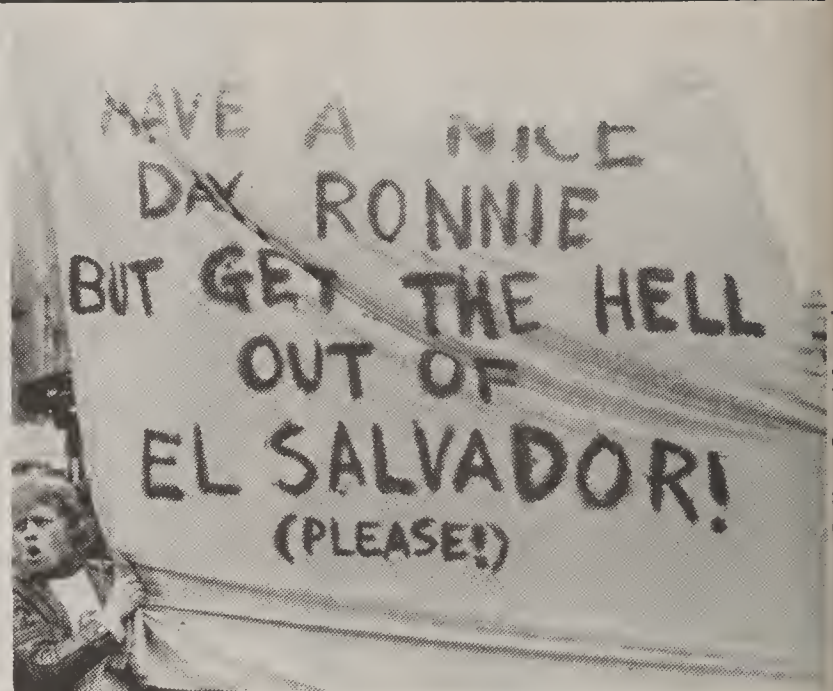 HAVE A NICE
DAY RONNIE
BUT GET THE HELL
OUT OF
EL SALVADOR!
(PLEASE!)